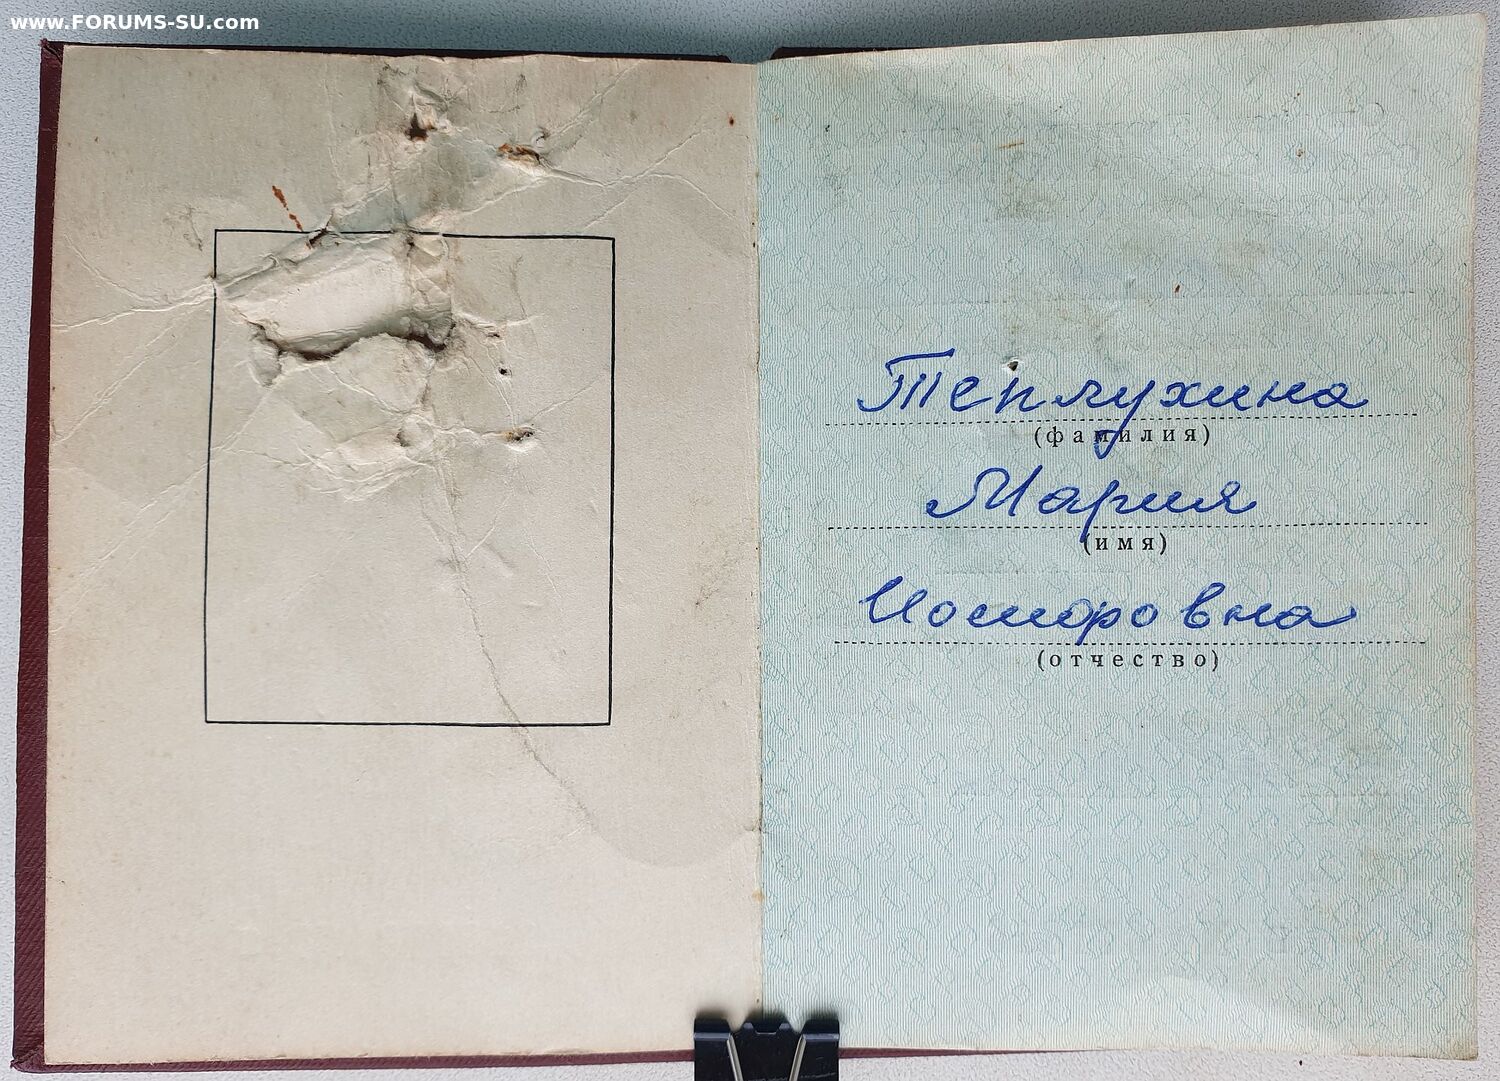 www.FORUMS-SU.com
Теплухина
(фамилия)
Мария
(имя)
(отчество)